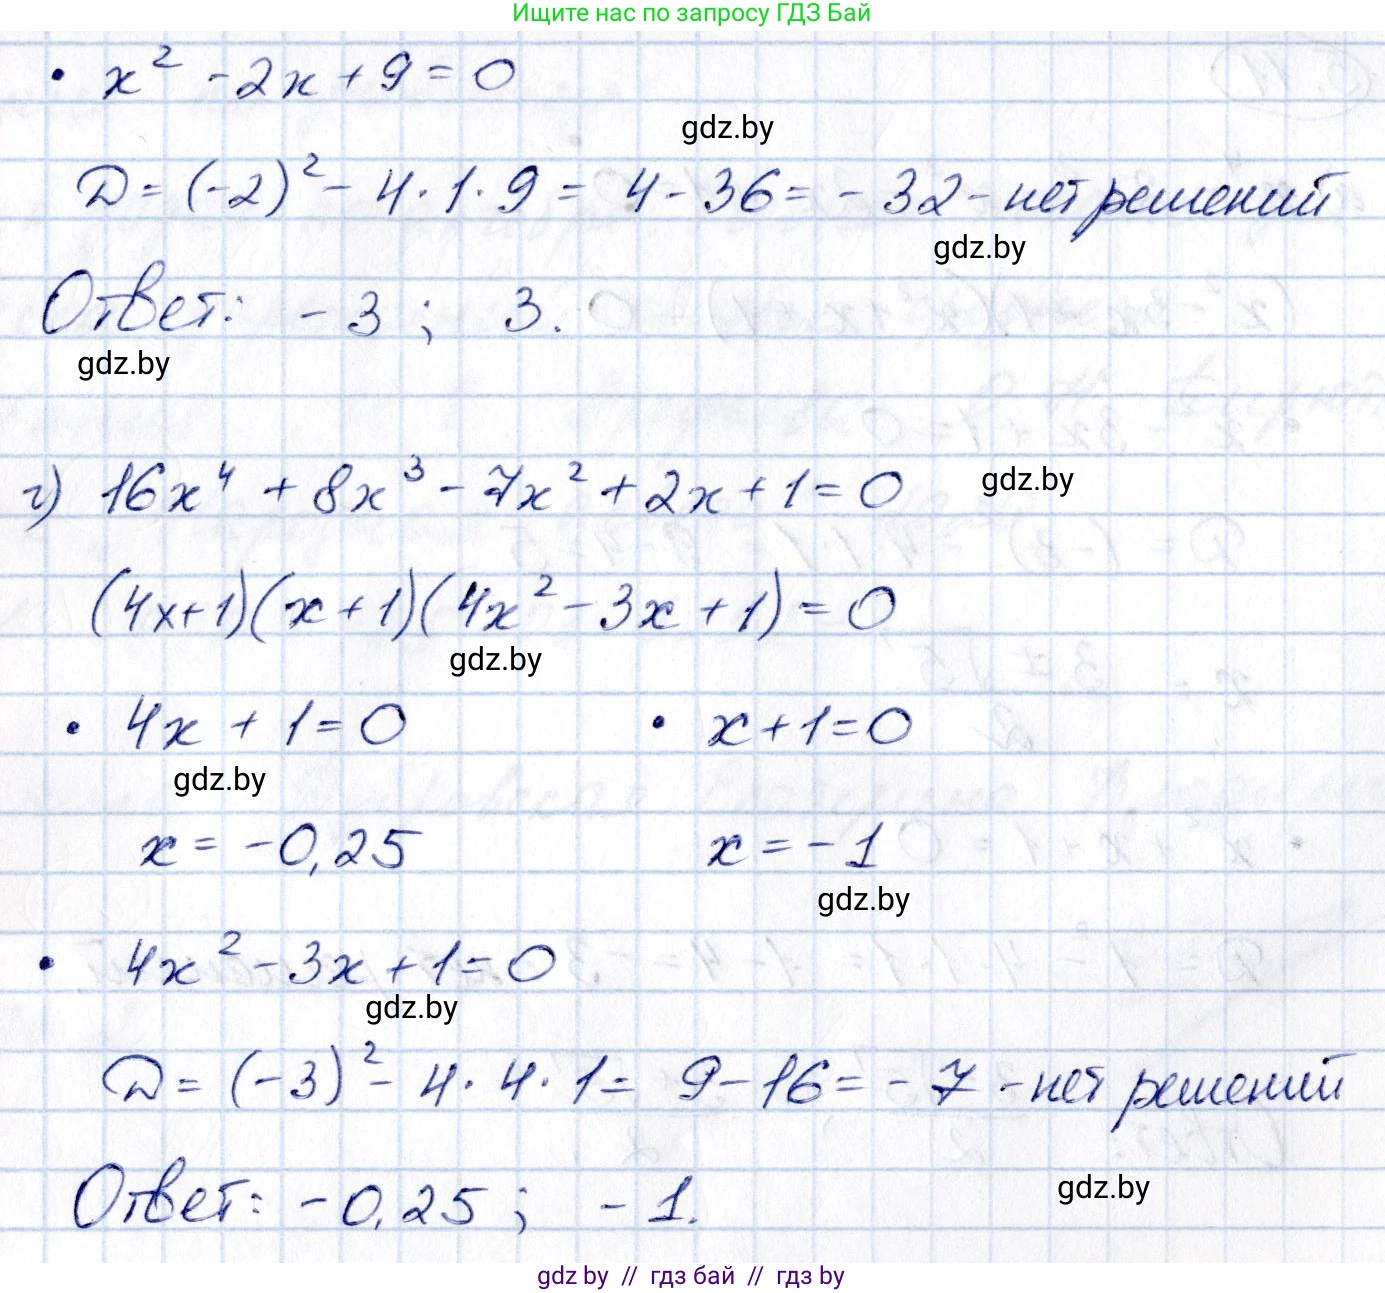 Ищите нас по запросу ГДЗ Бай
• x² - 2x + 9 = 0
gdz.by
D = (-2)² - 4 · 1 · 9 = 4 - 36 = - 32 - нет решений
gdz.by
Ответ: - 3 ; 3.
gdz.by
г) 16x⁴ + 8x³ - 7x² + 2x + 1 = 0
gdz.by
(4x+1)(x+1)(4x² - 3x + 1) = 0
gdz.by
• 4x + 1 = 0 • x+1=0
gdz.by
x = -0,25 x = - 1
gdz.by
• 4x² - 3x + 1 = 0
gdz.by
D = (-3)² - 4 · 4 · 1 = 9 - 16 = - 7 - нет решений
gdz.by
Ответ: -0,25 ; - 1.
gdz by // гдз бай // гдз by